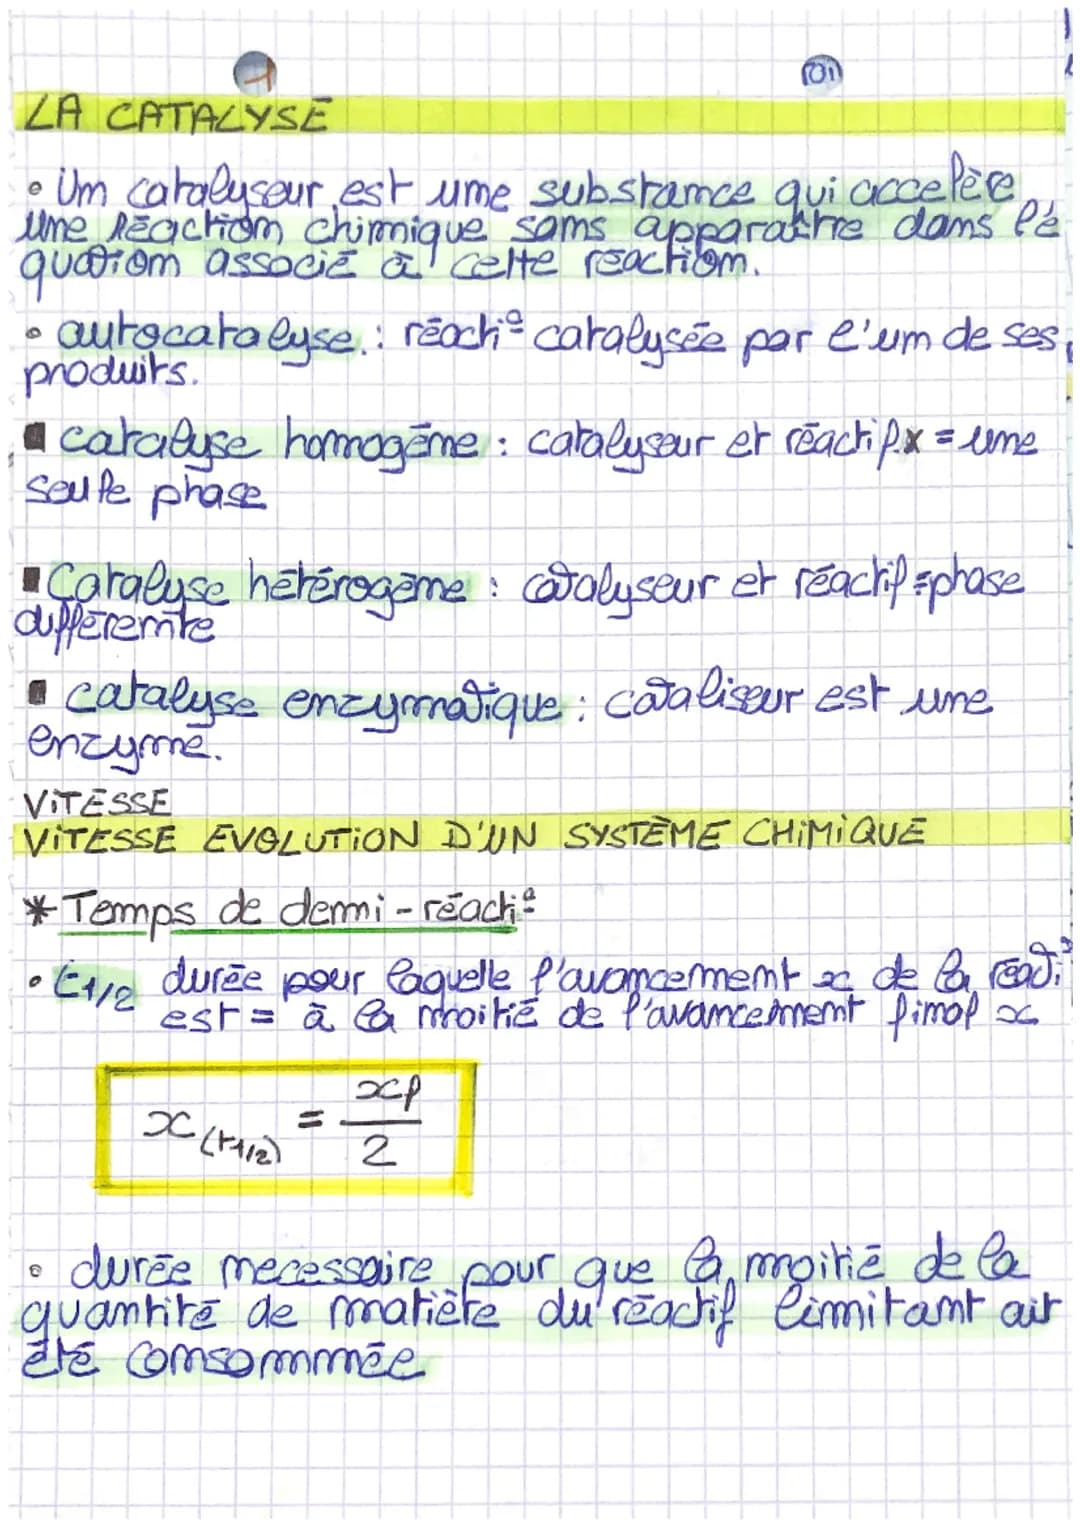 LA CATALYSE
• Un catalyseur est une substance qui accelère
une réaction chimique sans apparaître dans l'é
quation associé à cette réaction.
• autocatalyse : réacti° catalysée par l'un de ses
produits.
▪ catalyse homogéne : catalyseur et réactif x = une
seule phase
▪ Catalyse hétérogène : catalyseur et réactif = phase
différente
▪ catalyse enzymatique : cataliseur est une
enzyme.
VITESSE
VITESSE EVOLUTION D'UN SYSTÈME CHIMIQUE
* Temps de demi-réacti°
• t1/2 durée pour laquelle l'avancement x de la réacti°
est = à la moitié de l'avancement final x
x(t1/2) = xf/2
• durée necessaire pour que la moitié de la
quantité de matière du réactif limitant ait
été consommée